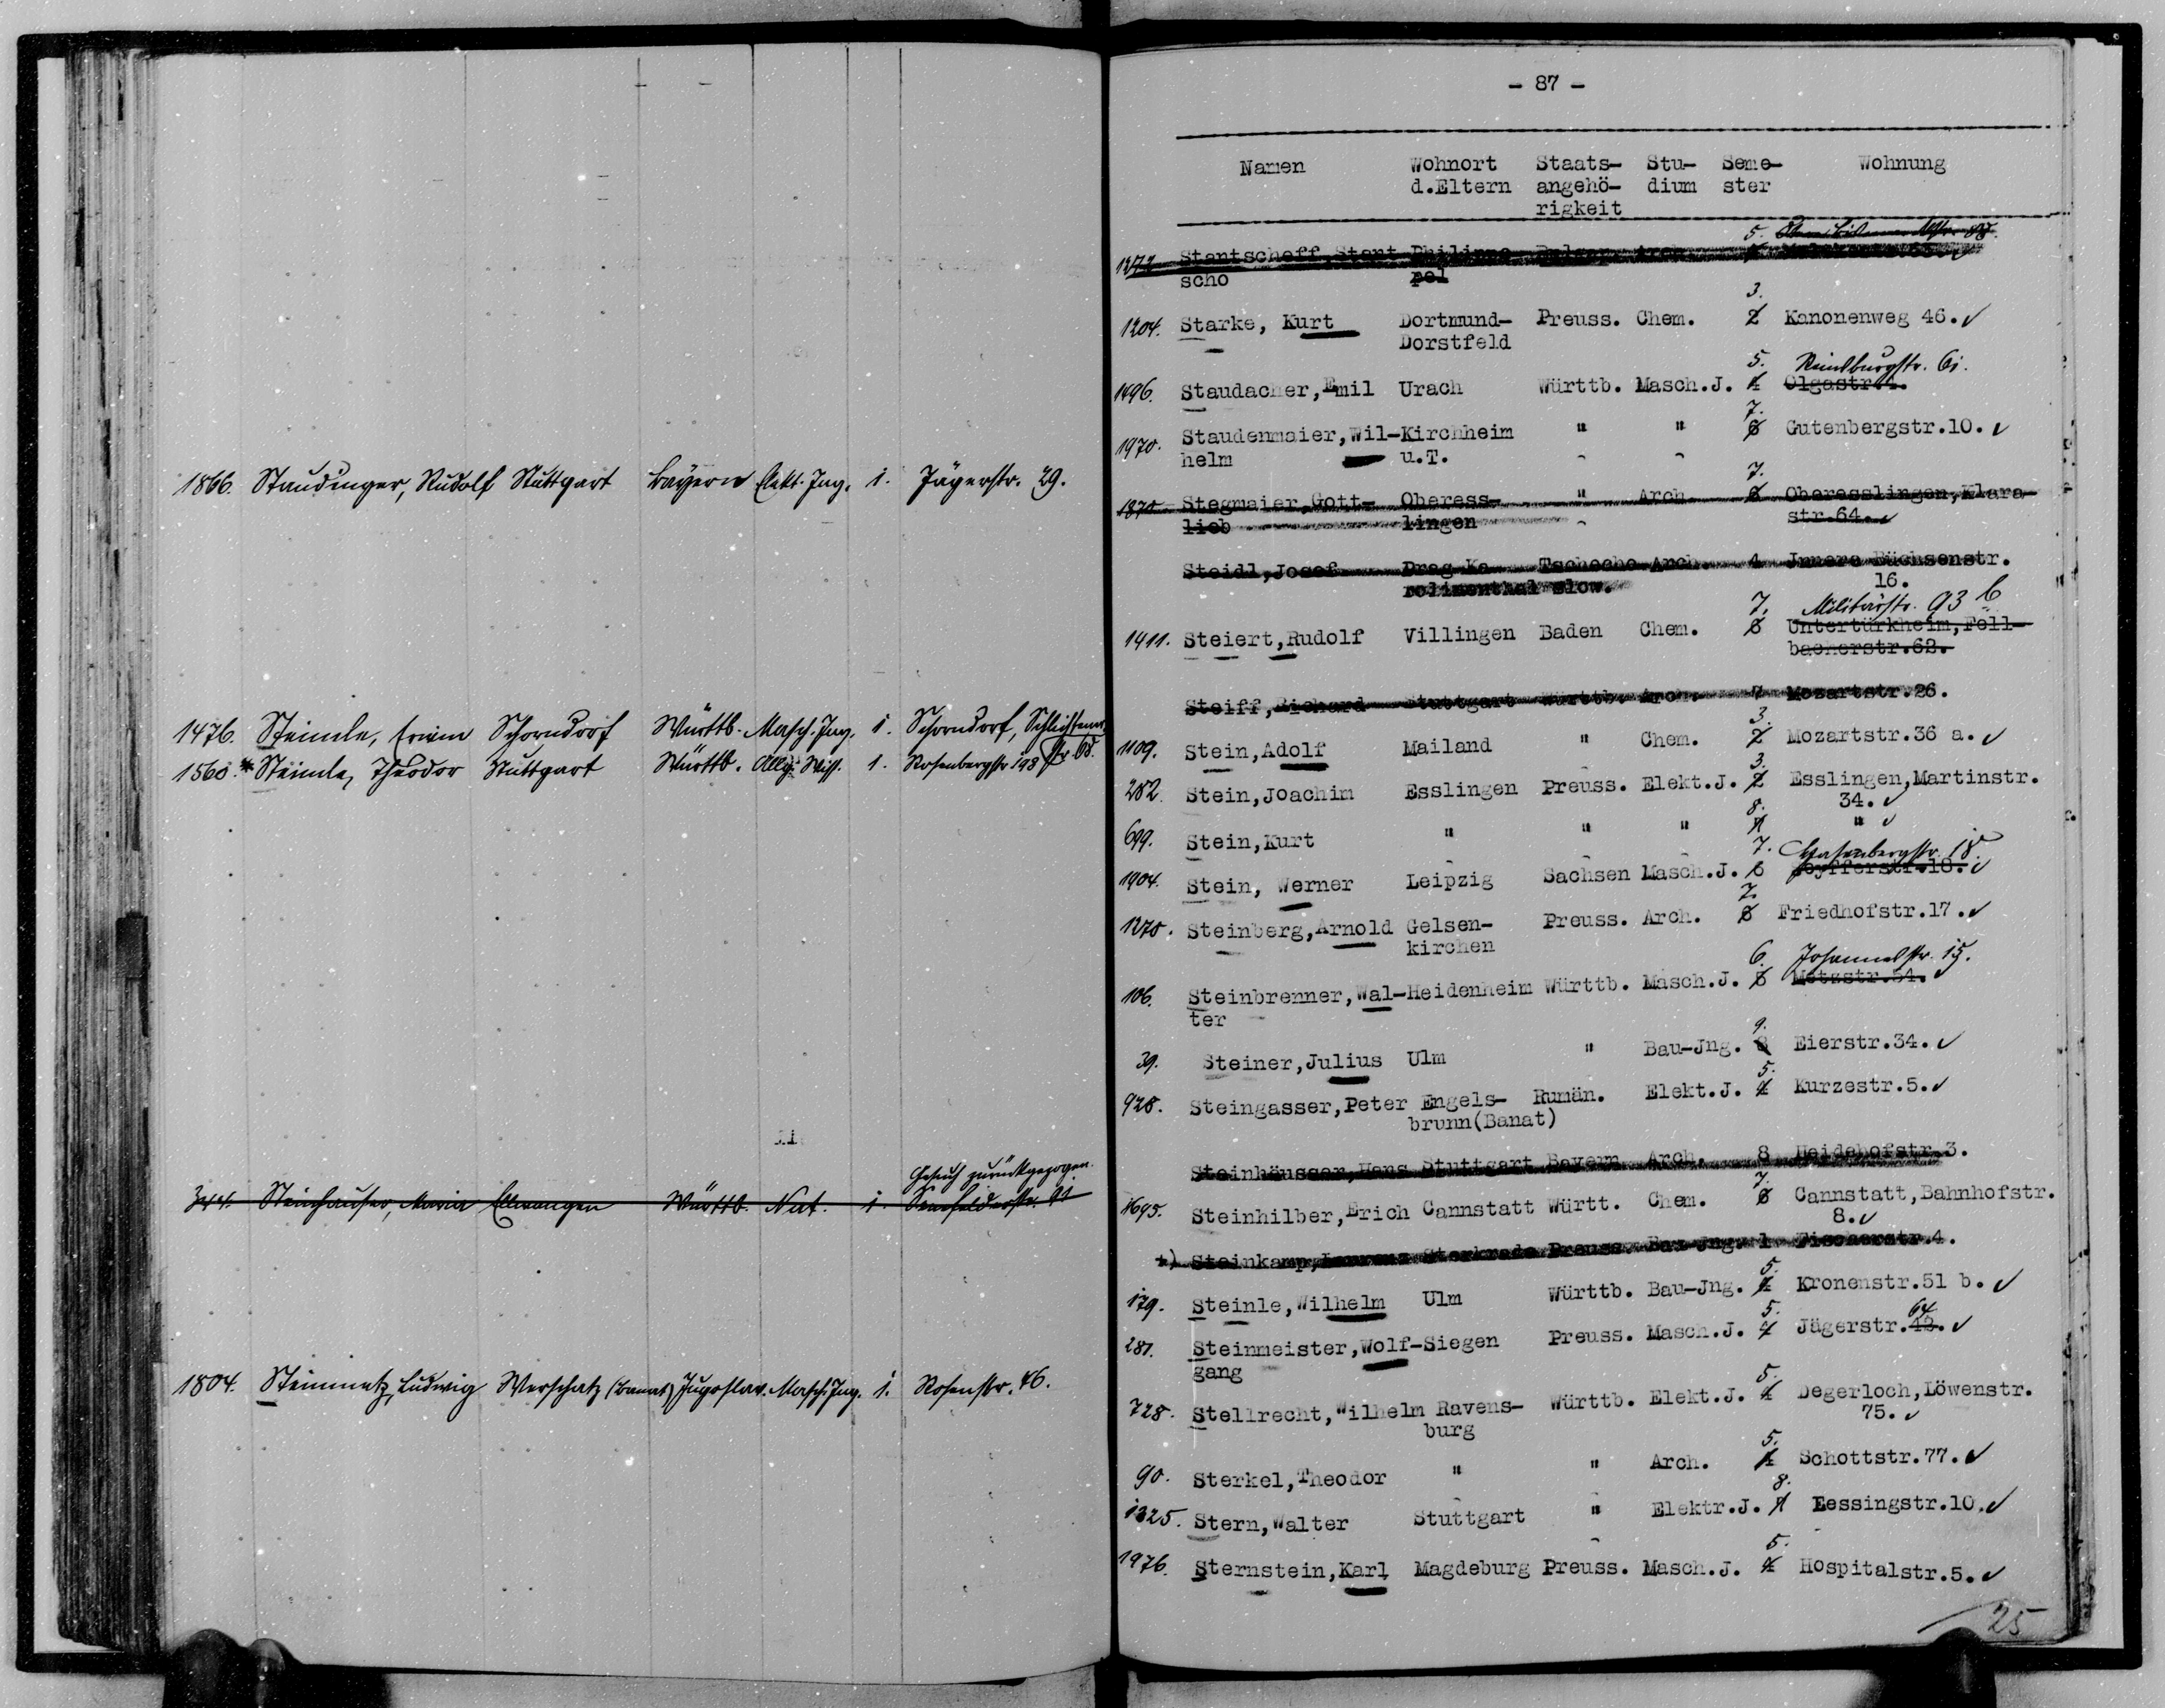 1866. Staudinger, Rudolf Stuttgart Bayern Elekt. Ing. 1. Jägerstr. 29.
1476. Steimle, Erwin Schorndorf Württb. Masch. Ing. 1. Schorndorf, Schlichtener
1560. * Steimle, Theodor Stuttgart Württb. Allg. Wiss. 1. Rosenbergstr. 198 str. 68.
Gesuch zurückgezogen.
344. Steinhauser, Maria Ellwangen Württb. Nat. 1. Senefelderstr. 91
1804. Steinmetz, Ludwig Werschatz (Banat) Jugoslav. Masch. Ing. 1. Rosenstr. 46.
- 87 -
Namen Wohnort Staats- Stu- Seme- Wohnung
d.Eltern angehö- dium ster
rigkeit
5.
1272 Stantscheff, Stant Philippo- Bulgar. Arch.
scho pel
3.
1204. Starke, Kurt Dortmund- Preuss. Chem. 2 Kanonenweg 46.✓
Dorstfeld
5. Reinsburgstr. 61.
1496. Staudacher, Emil Urach Württb. Masch.J. 4 Olgastr.4.
7.
1970. Staudenmaier, Wil- Kirchheim " " 6 Gutenbergstr.10.✓
helm u.T.
7.
1870 Stegmaier, Gott- Oberess- " Arch. 6 Oberesslingen, Klara-
lieb lingen str.64.✓
Steidl, Josef Prag Ka- Tschecho Arch. 4 Jnnere Büchsenstr.
rolinenthal slow. 16.
7. Militärstr. 93 b
1411. Steiert, Rudolf Villingen Baden Chem. 6 Untertürkheim, Fell-
bacherstr.62.
Steiff, Richard Stuttgart Württb. Arch. 7 Mozartstr.26.
3.
1109. Stein, Adolf Mailand " Chem. 2 Mozartstr.36 a.✓
3.
282. Stein, Joachim Esslingen Preuss. Elekt.J. 2 Esslingen, Martinstr.
34.✓
8.
699. Stein, Kurt " " " 7 " ✓
7. Hasenbergstr. 18.
1904. Stein, Werner Leipzig Sachsen Masch.J. 6 ✓
7.
1270. Steinberg, Arnold Gelsen- Preuss. Arch. 6 Friedhofstr.17.✓
kirchen
6. Johannesstr. 15.
106. Steinbrenner, Wal- Heidenheim Württb. Masch.J. 5 Metzstr.54. ✓
ter
9.
39. Steiner, Julius Ulm " Bau-Jng. 8 Eierstr.34.✓
5.
928. Steingasser, Peter Engels- Rumän. Elekt.J. 4 Kurzestr.5.✓
brunn(Banat)
Steinhäusser, Hans Stuttgart Bayern Arch. 8 Heidehofstr.3.
7.
1695. Steinhilber, Erich Cannstatt Württ. Chem. 6 Cannstatt, Bahnhofstr.
8.✓
+) Steinkamp, Sterkrade Preuss. Bau-Jng. 1 Fischerstr.4.
5.
179. Steinle, Wilhelm Ulm Württb. Bau-Jng. 4 Kronenstr.51 b. ✓
5. 64
281. Steinmeister, Wolf- Siegen Preuss. Masch.J. 4 Jägerstr.43.✓
gang
5.
728. Stellrecht, Wilhelm Ravens- Württb. Elekt.J. 4 Degerloch, Löwenstr.
burg 75.✓
5.
90. Sterkel, Theodor " " Arch. 4 Schottstr.77.✓
8.
1325. Stern, Walter Stuttgart " Elektr.J. 7 Lessingstr.10.✓
5.
1976. Sternstein, Karl Magdeburg Preuss. Masch.J. 4 Hospitalstr.5.✓
25